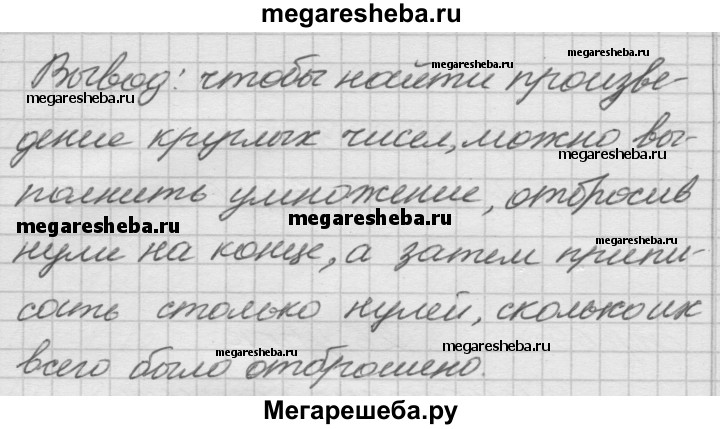 megaresheba.ru
Вывод: чтобы найти произве-
megaresheba.ru
megaresheba.ru
дение круглых чисел, можно вы-
megaresheba.ru
полнить умножение, отбросив
megaresheba.ru
megaresheba.ru
нули на конце, а затем припи-
megaresheba.ru
сать столько нулей, сколько их
megaresheba.ru
megaresheba.ru
всего было отброшено.
Мегарешеба.ру